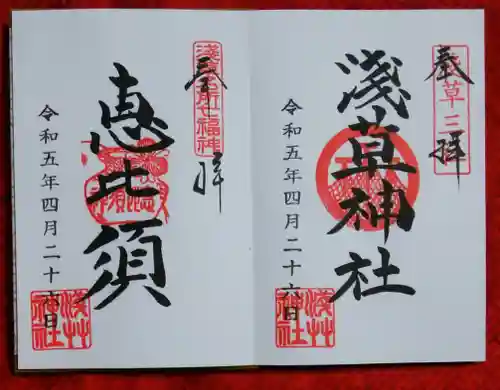 奉拝
淺草神社
令和五年四月二十六日
淺草神社
奉拝
淺草名所七福神
恵比須
令和五年四月二十六日
淺草神社